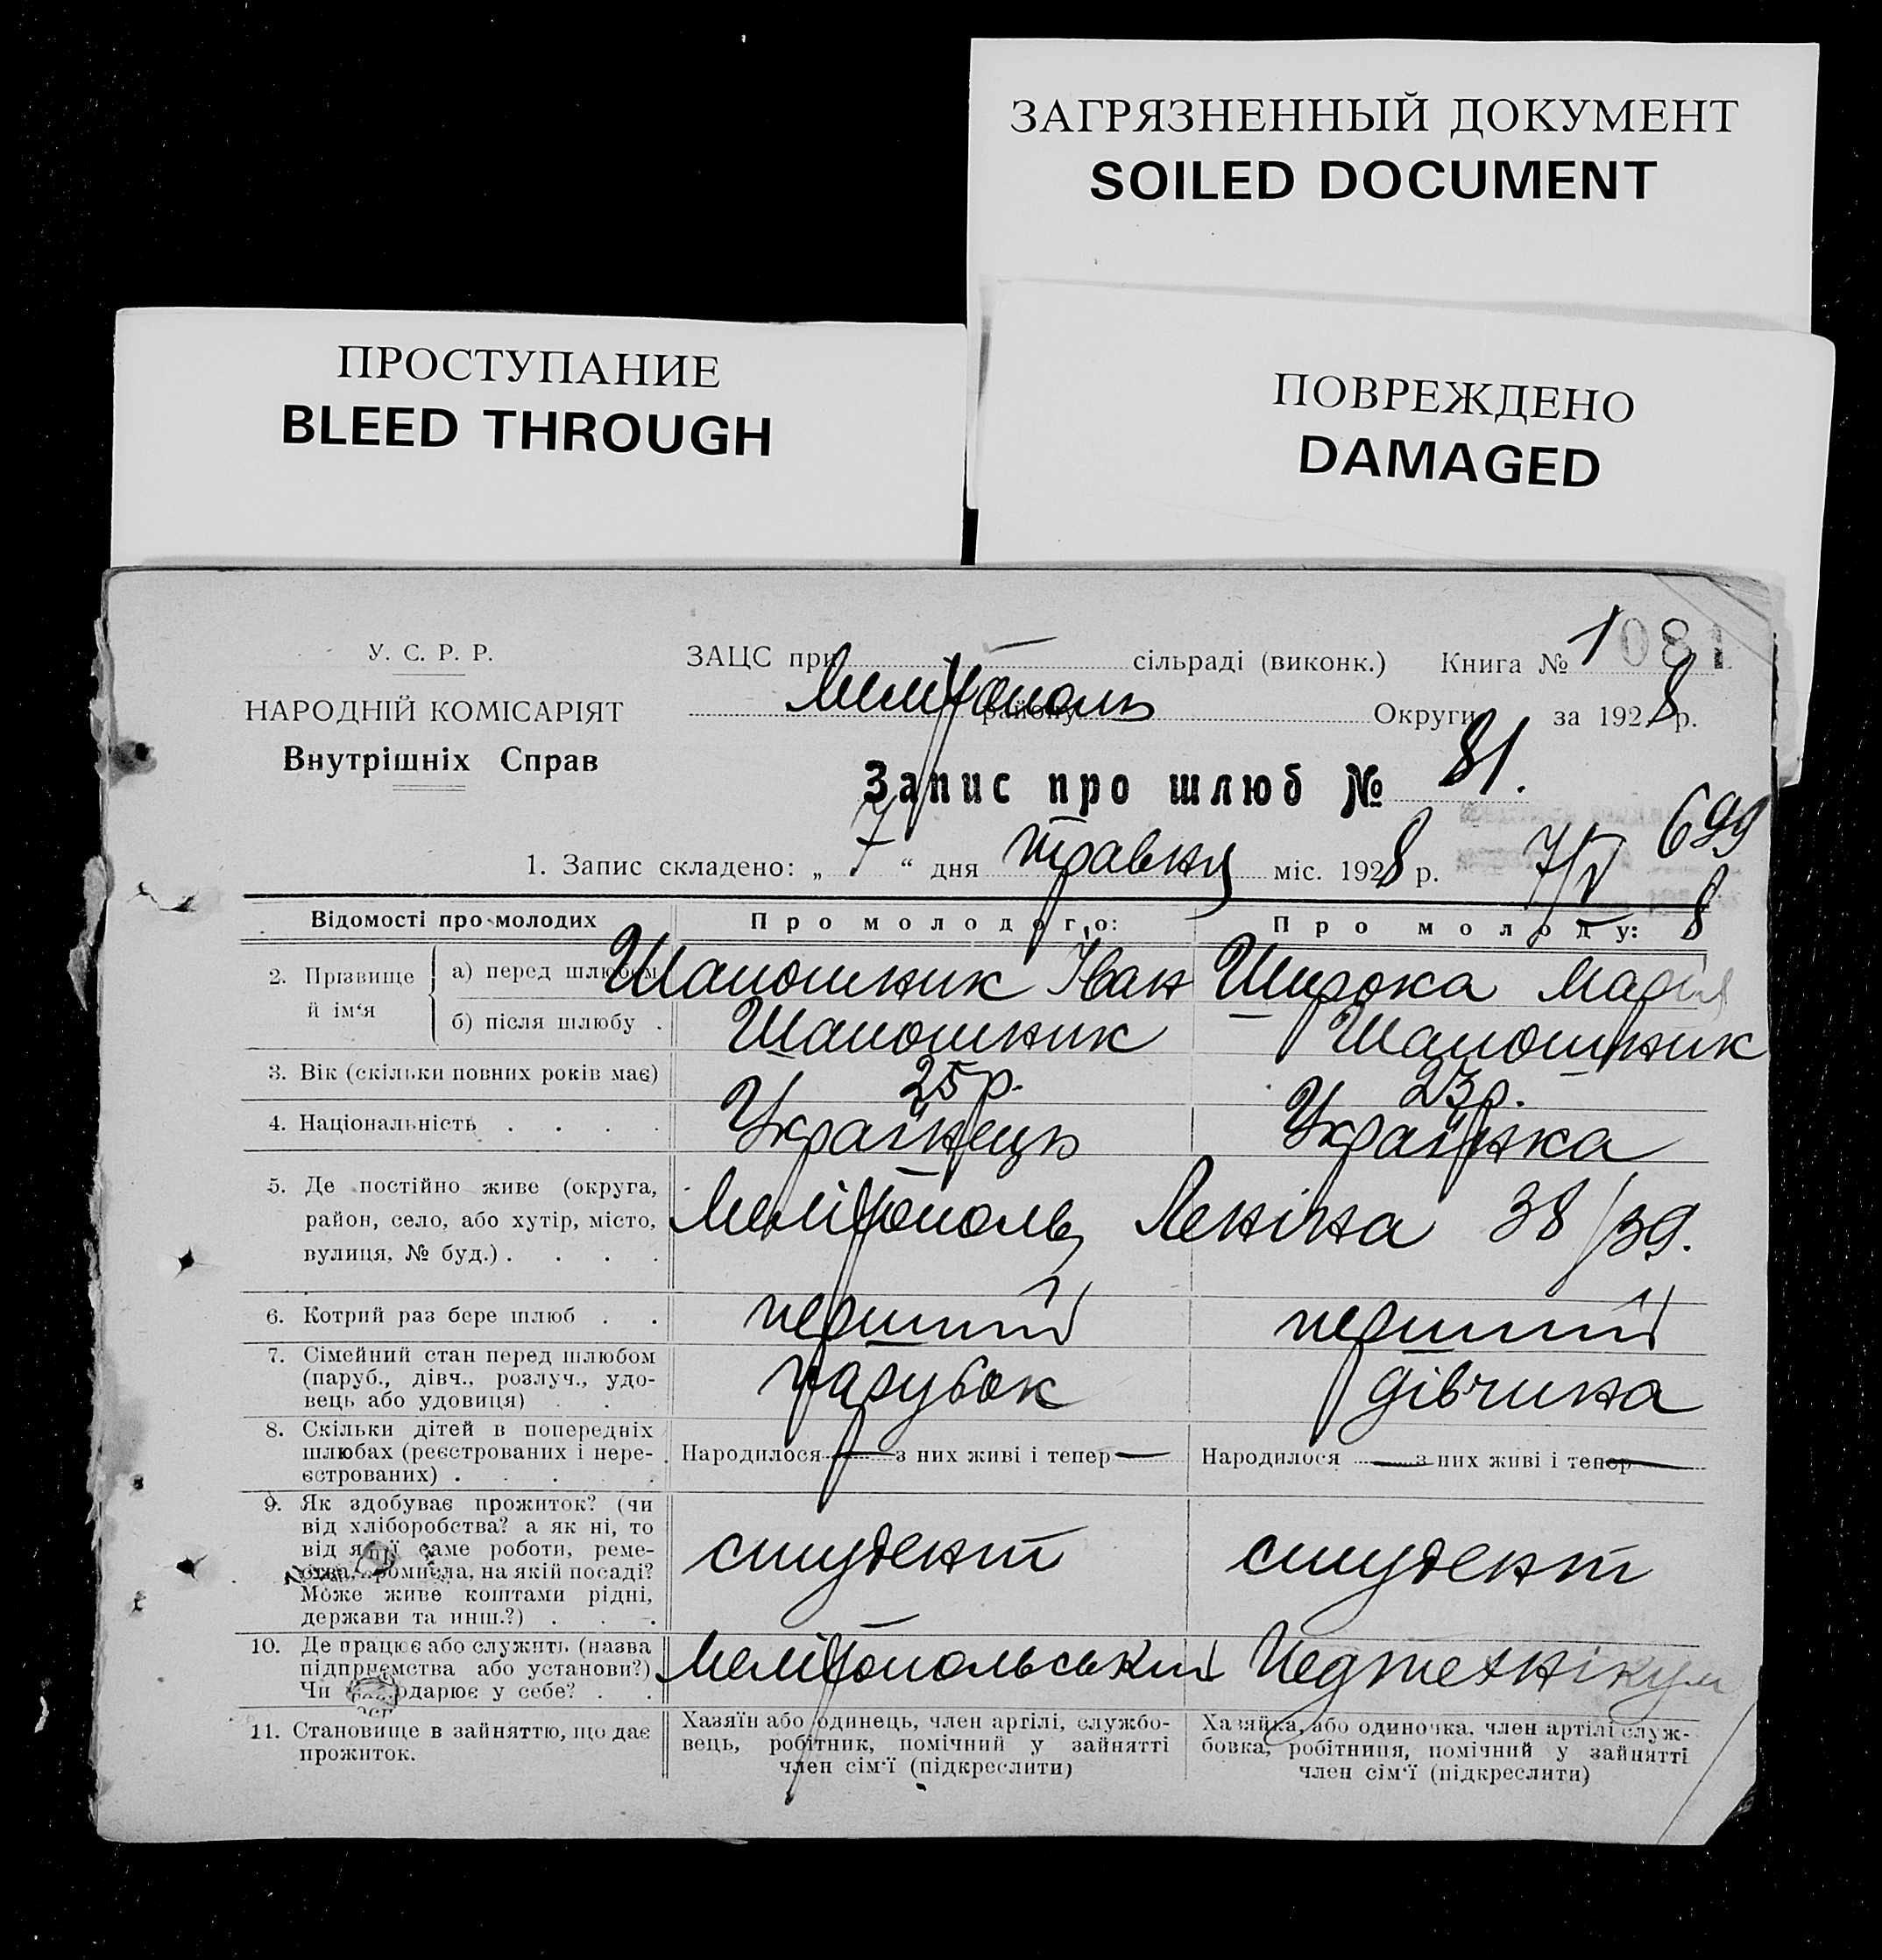 ЗАГРЯЗНЕННЫЙ ДОКУМЕНТ
SOILED DOCUMENT
ПРОСТУПАНИЕ
BLEED THROUGH
ПОВРЕЖДЕНО
DAMAGED
У. С. Р. Р.
НАРОДНІЙ КОМІСАРІЯТ
Внутрішніх Справ
ЗАЦС при сільраді (виконк.) Книга № 1 081
Мелітополь району Округи за 1928 р.
Запис про шлюб № 81.
699
1. Запис складено: „ 7 “ дня травня міс. 1928 р. 7/V 8
Відомості про молодих
Про молодого:
Про молоду:
2. Прізвище й ім‘я
а) перед шлюбом
Шапошник Іван
Широка Марія
б) після шлюбу .
Шапошник
Шапошник
3. Вік (скільки повних років має)
25 р.
23 р.
4. Національність . . . .
Українець
Українка
5. Де постійно живе (округа,
район, село, або хутір, місто,
вулиця, № буд.) . . . .
Мелітополь, Леніна 38/39.
6. Котрий раз бере шлюб . .
перший
перший
7. Сімейний стан перед шлюбом
(паруб., дівч., розлуч., удо-
вець або удовиця) . .
парубок
дівчина
8. Скільки дітей в попередніх
шлюбах (реєстрованих і нере-
єстрованих) . . . .
Народилося — з них живі і тепер —
Народилося — з них живі і тепер —
9. Як здобуває прожиток? (чи
від хліборобства? а як ні, то
від якої саме роботи, реме-
ства, промисла, на якій посаді?
Може живе коштами рідні,
держави та инш.?) . . .
студент
студент
10. Де працює або служить (назва
підприємства або установи?)
Чи господарює у себе? . .
Мелітопольський Педтехнікум
11. Становище в зайняттю, що дає
прожиток.
Хазяїн або одинець, член артілі, службо-
вець, робітник, помічний у зайнятті
член сім‘ї (підкреслити)
Хазяйка, або одиночка, член артілі служ-
бовка, робітниця, помічний у зайнятті
член сім‘ї (підкреслити)